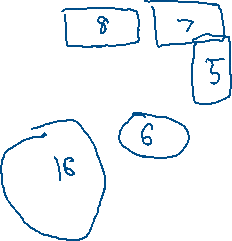 8 7
5
6
16